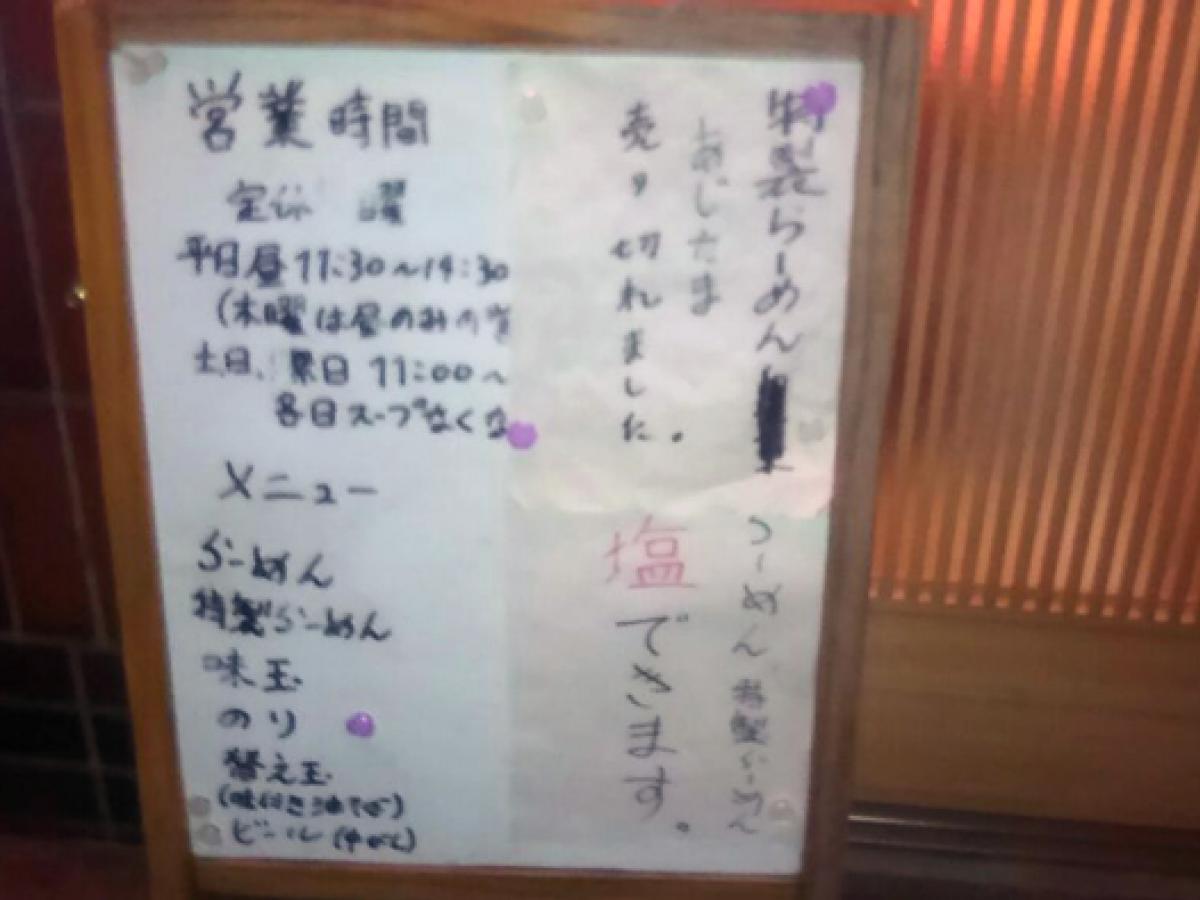 営業時間
定休 曜
平日昼11:30～14:30
(木曜は昼のみの営
土日、祭日 11:00～
各日スープなくな
メニュー
らーめん
特製らーめん
味玉
のり
替え玉
(味付き油そば)
ビール(中びん)
特製らーめん
あじたま
売り切れました。
らーめん 特製らーめん
塩できます。